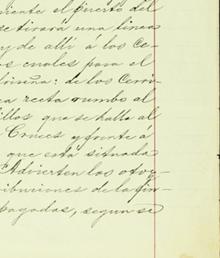 niente el puerto del
se tirará una linea
y de alli á los Ce-
os cuales para el
de los Cerri-
a recta rumbo al
illos que se halla al
Cruces y frente á
que está situada
Advierten los otor-
ribuciones de la fin-
pagadas, segun se